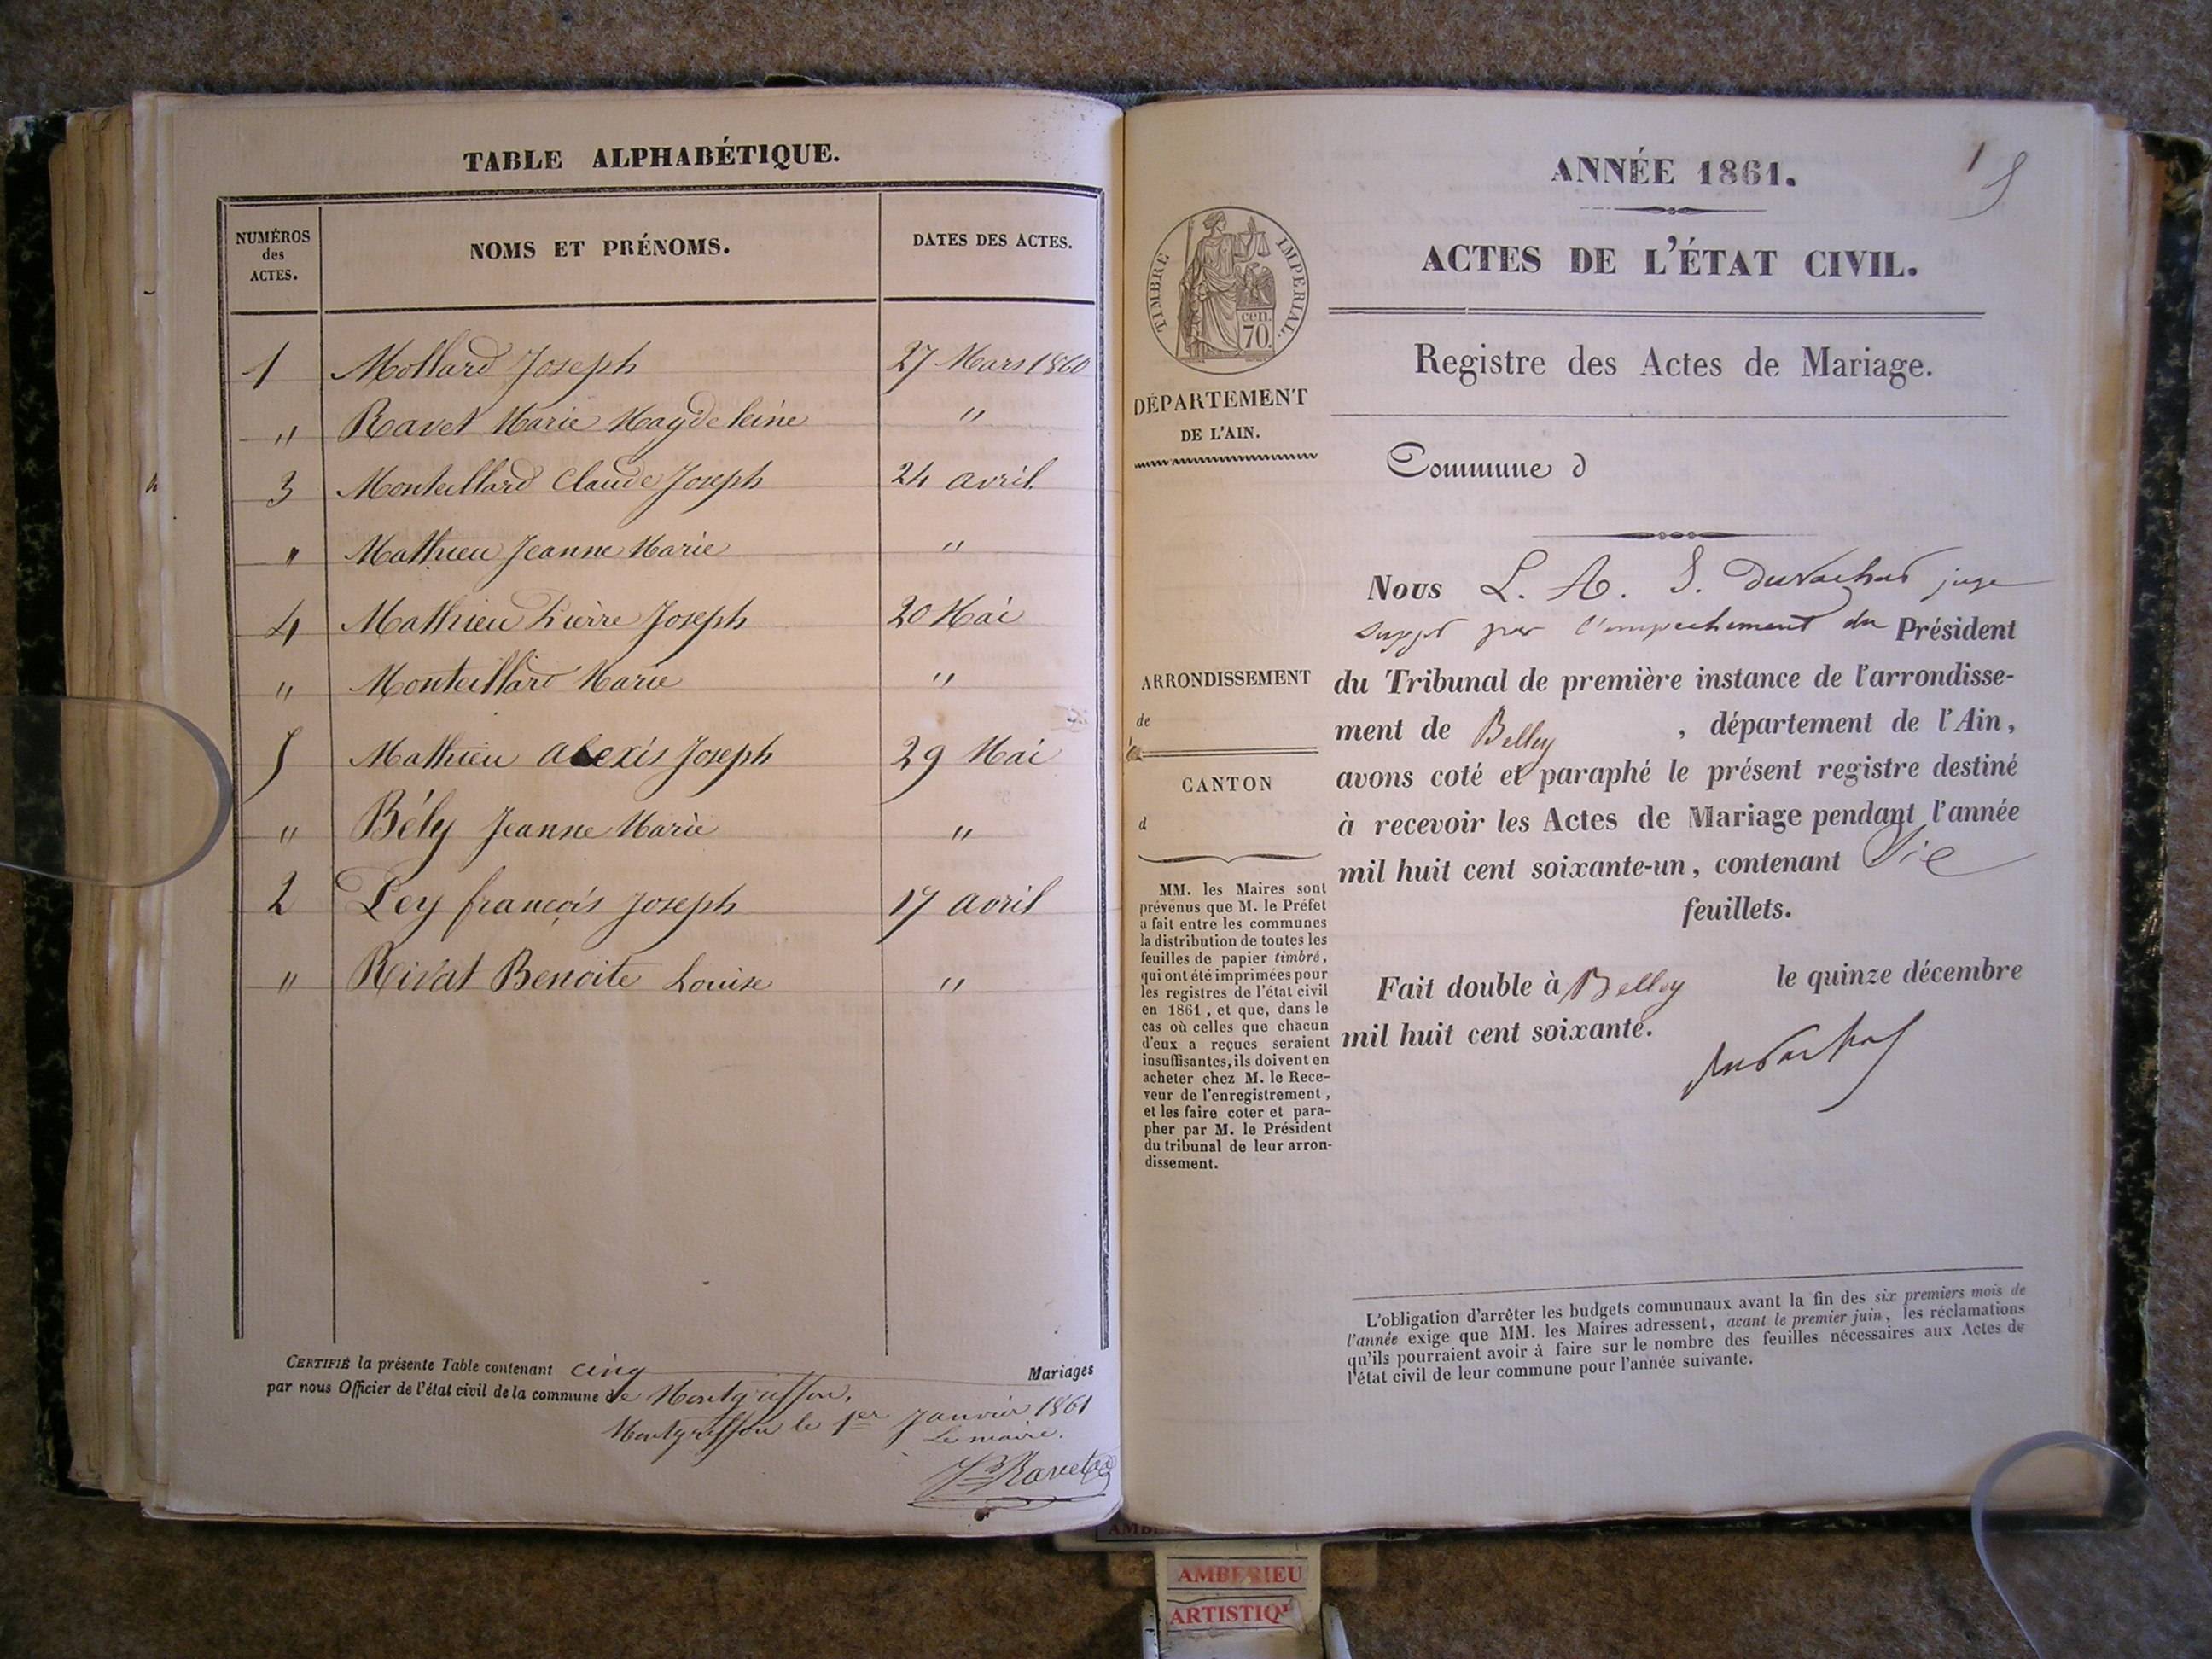 TABLE ALPHABÉTIQUE.
NUMÉROS des ACTES. NOMS ET PRÉNOMS. DATES DES ACTES.
1 Mollard Joseph 27 Mars 1860
" Ravet Marie Magdeleine "
3 Monteillard Claude Joseph 24 avril
" Mathieu Jeanne Marie "
4 Mathieu Pierre Joseph 20 Mai
" Monteillard Marie "
5 Mathieu Alexis Joseph 29 Mai
" Bély Jeanne Marie "
2 Ley françois Joseph 17 avril
" Rivat Benoite Louise "
CERTIFIÉ la présente Table contenant cinq Mariages
par nous Officier de l'état civil de la commune de Montgriffon.
Montgriffon le 1er Janvier 1861
Le maire.
Ravet
1
ANNÉE 1861.
ACTES DE L'ÉTAT CIVIL.
TIMBRE IMPÉRIAL.
cen.
70.
Registre des Actes de Mariage.
DÉPARTEMENT
DE L'AIN.
Commune d
Nous L. A. juge
suppt par l'empêchement du Président
du Tribunal de première instance de l'arrondisse-
ment de Belley , département de l'Ain,
avons coté et paraphé le présent registre destiné
à recevoir les Actes de Mariage pendant l'année
mil huit cent soixante-un, contenant
feuillets.
Fait double à Belley le quinze décembre
mil huit cent soixante.
ARRONDISSEMENT
de
CANTON
d
MM. les Maires sont
prévenus que M. le Préfet
a fait entre les communes
la distribution de toutes les
feuilles de papier timbré,
qui ont été imprimées pour
les registres de l'état civil
en 1861, et que, dans le
cas où celles que chacun
d'eux a reçues seraient
insuffisantes, ils doivent en
acheter chez M. le Rece-
veur de l'enregistrement,
et les faire coter et para-
pher par M. le Président
du tribunal de leur arron-
dissement.
L'obligation d'arrêter les budgets communaux avant la fin des six premiers mois de
l'année exige que MM. les Maires adressent, avant le premier juin, les réclamations
qu'ils pourraient avoir à faire sur le nombre des feuilles nécessaires aux Actes de
l'état civil de leur commune pour l'année suivante.
AMBERIEU
ARTISTIQ